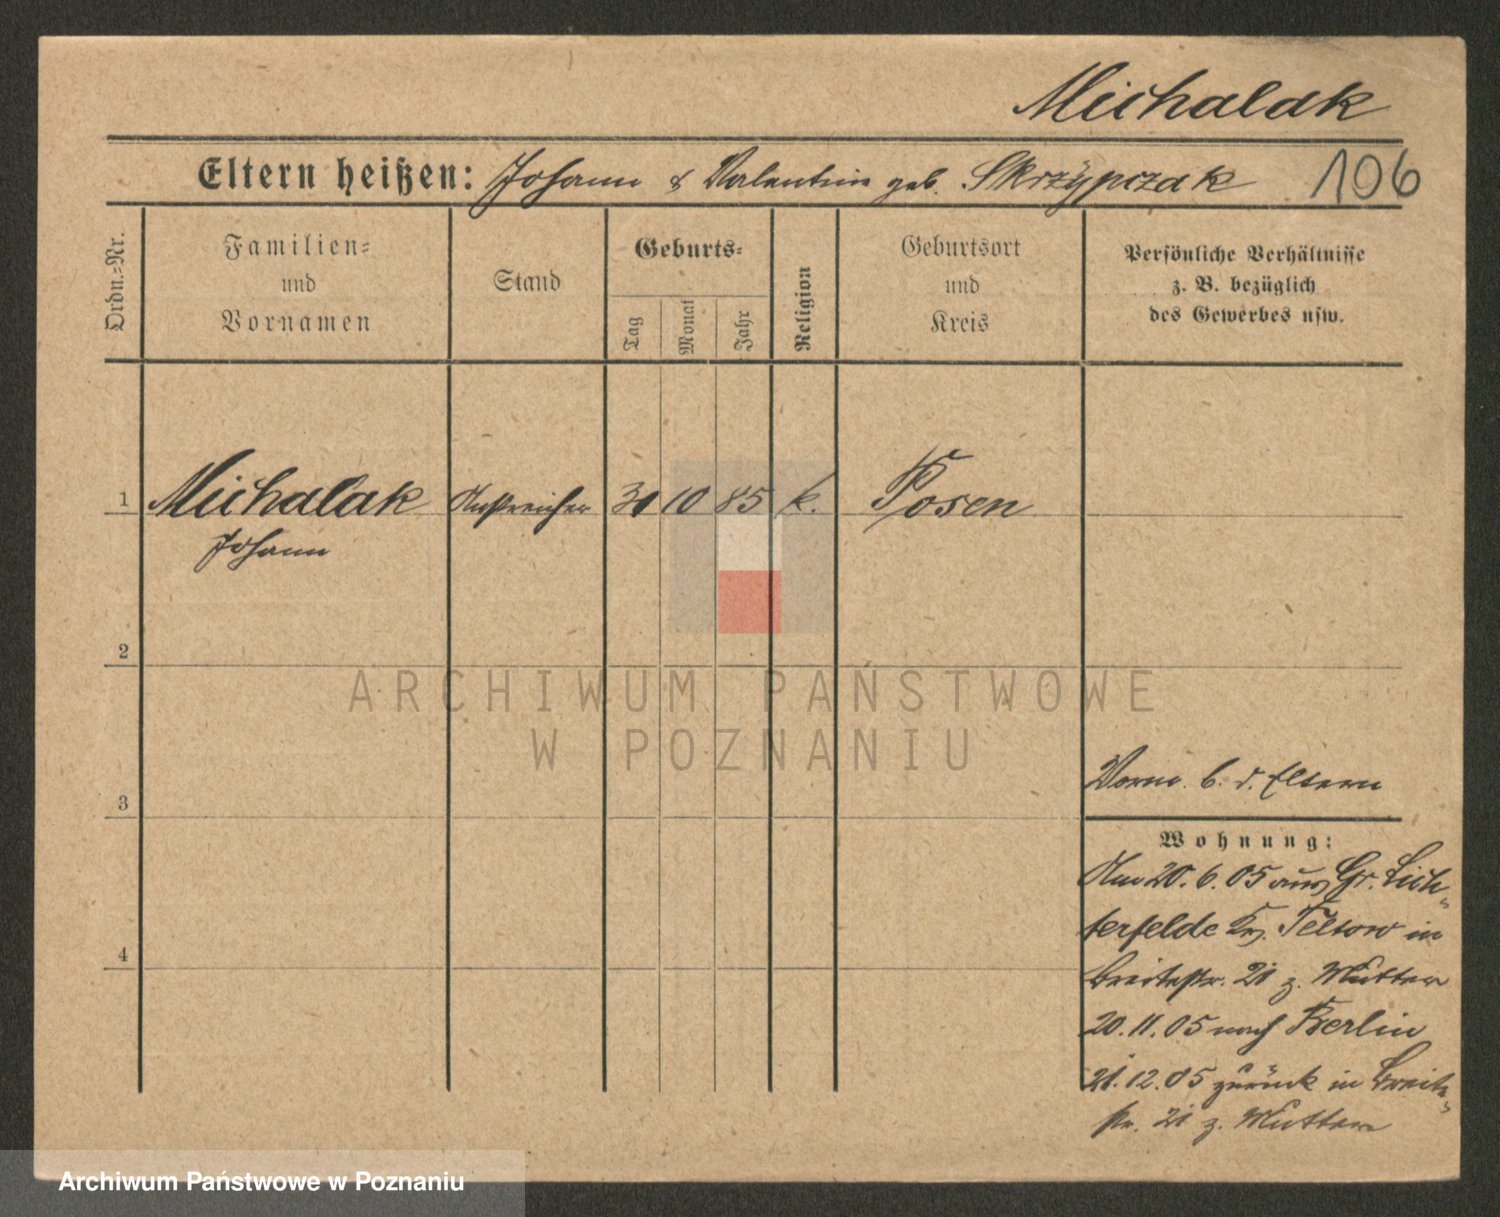 Michalak
Eltern heißen: Johann & Valentine geb. Skrzÿpczak 106
Ordn.=Nr.
Familien=
und
Vornamen
Stand
Geburts=
Tag
Monat
Jahr
Religion
Geburtsort
und
Kreis
Persönliche Verhältnisse
z. B. bezüglich
des Gewerbes usw.
1 Michalak Anstreicher 30 10 85 k. Posen
Johann
2
ARCHIWUM PAŃSTWOWE
W POZNANIU
3
Vorm. b. d. Eltern
Wohnung:
Am 20.6.05 aus Gr. Lich=
terfelde Kr. Teltow in
Breitestr. 21 z. Mutter
4
20.11.05 nach Berlin
21.12.05 zurück in Breite=
str. 21 z. Mutter
Archiwum Państwowe w Poznaniu